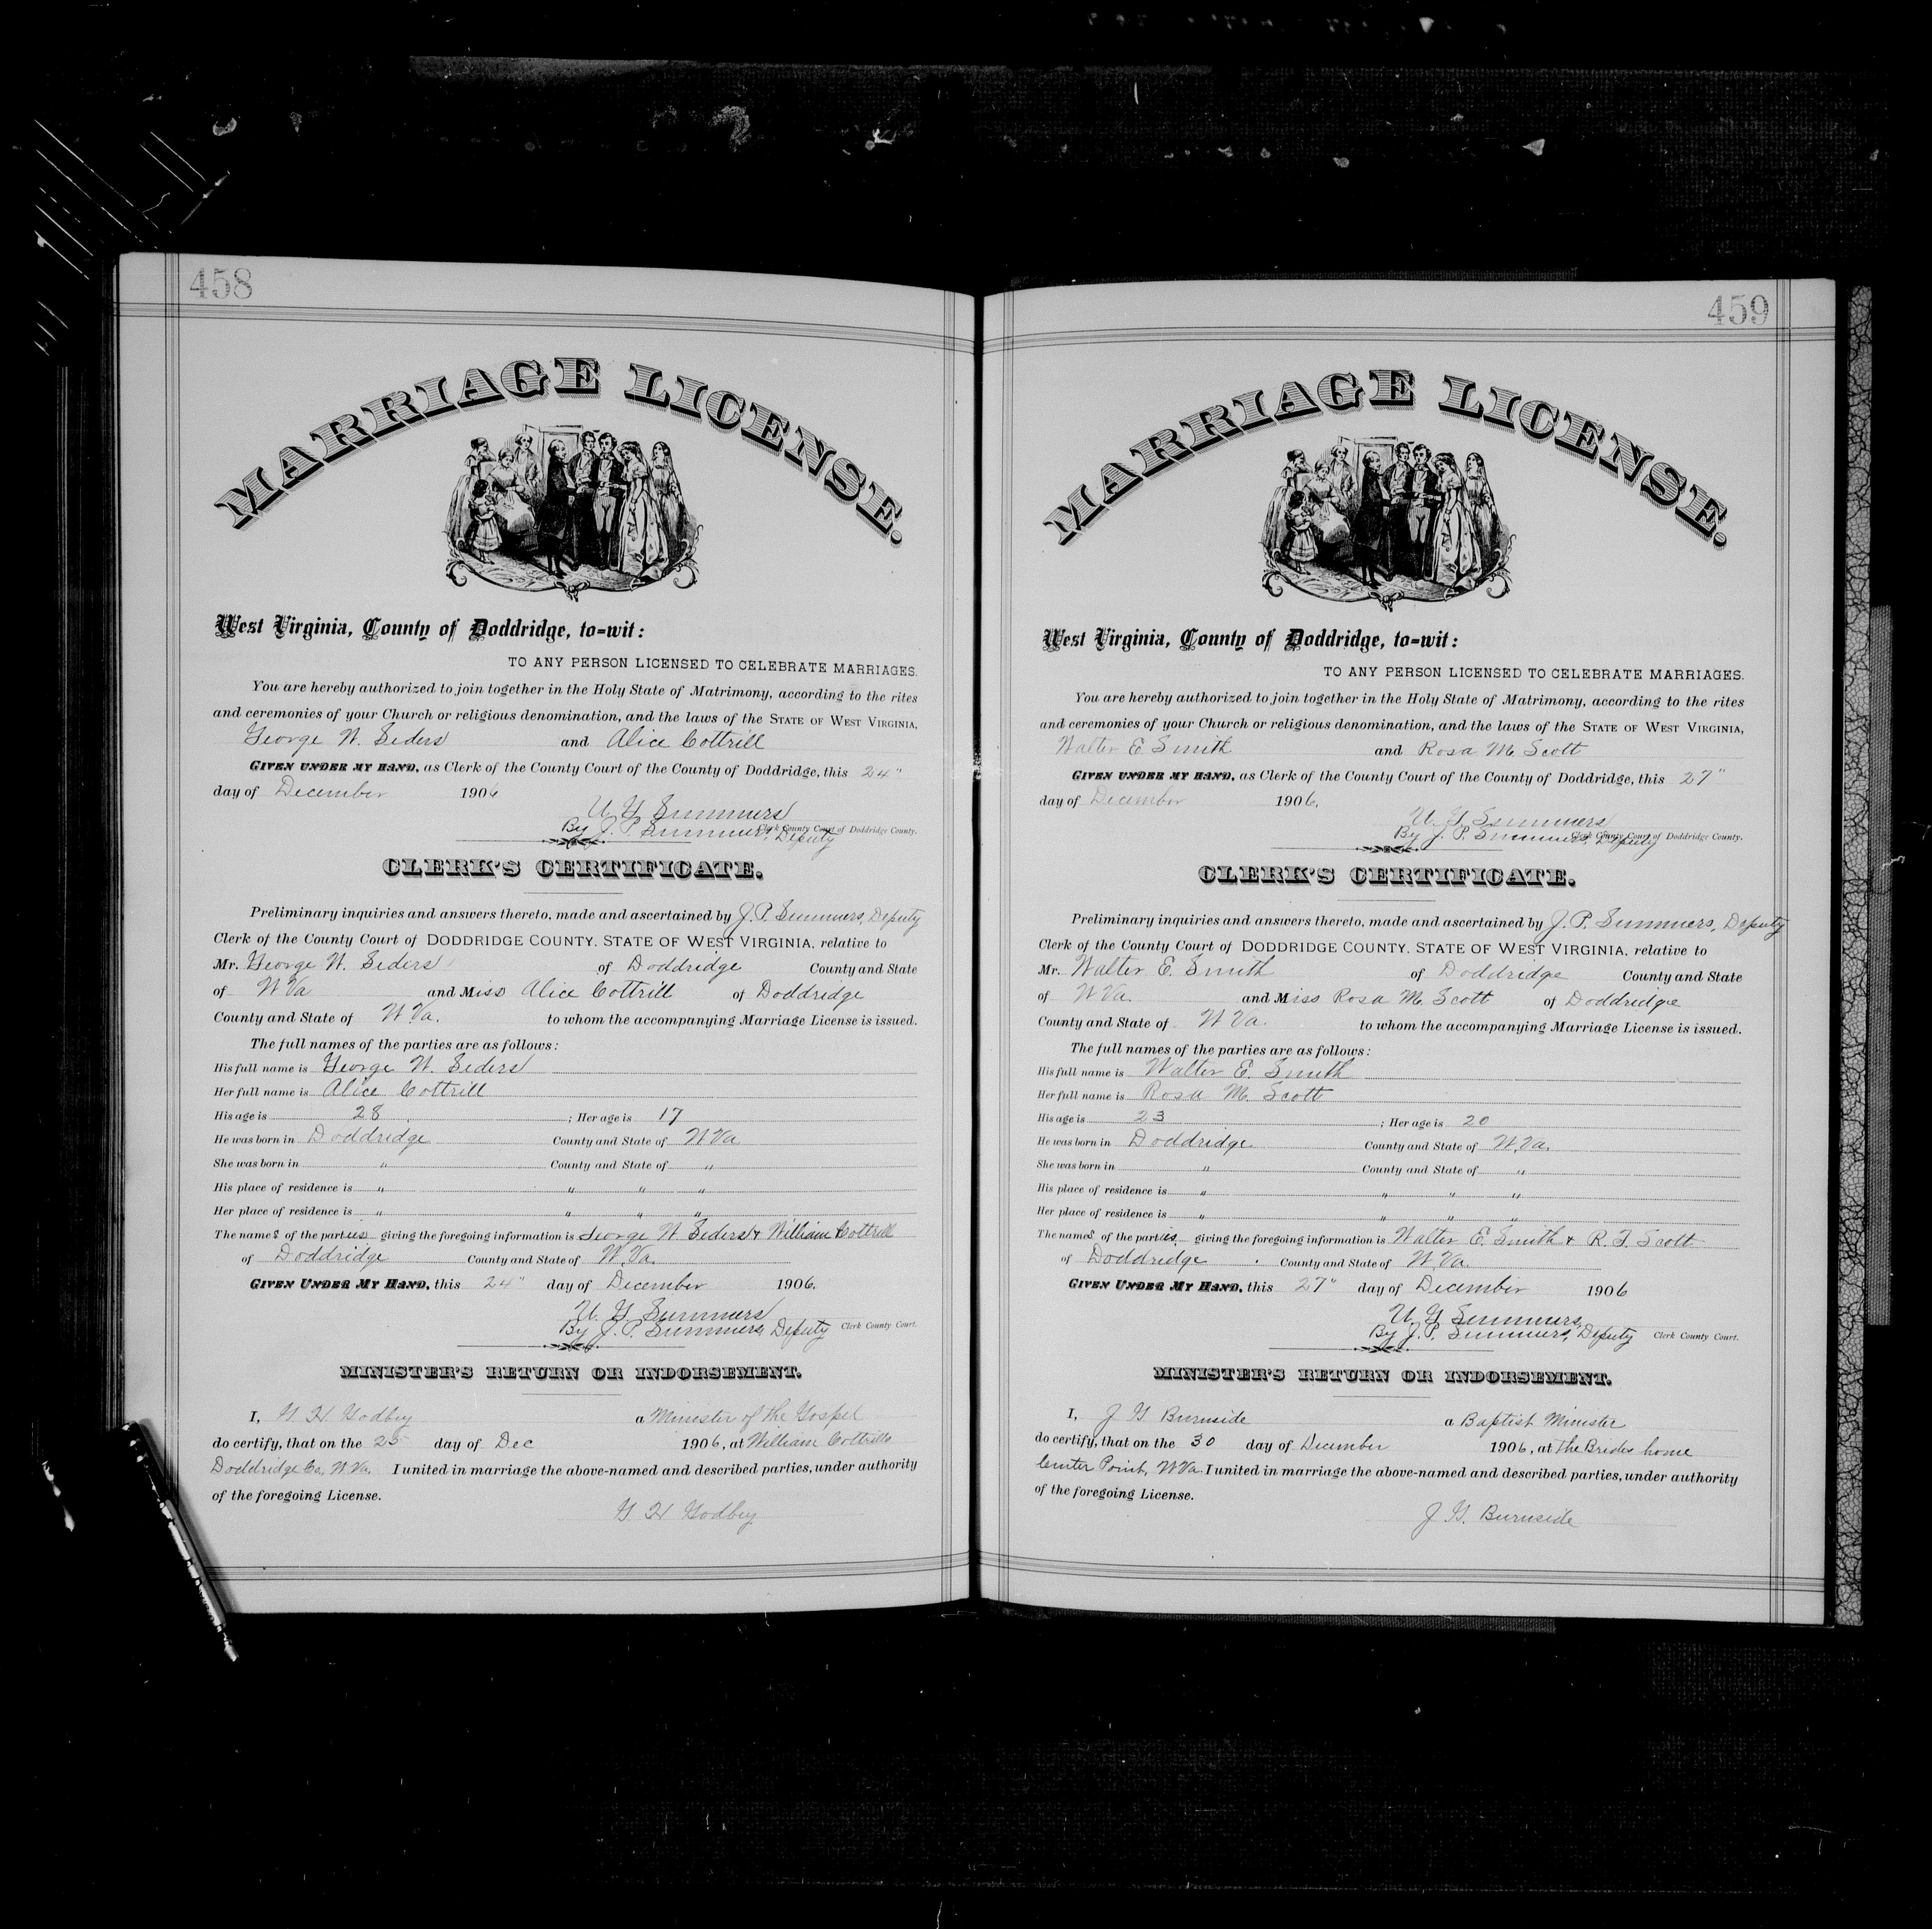 458
MARRIAGE LICENSE.
West Virginia, County of Doddridge, to=wit:
TO ANY PERSON LICENSED TO CELEBRATE MARRIAGES.
You are hereby authorized to join together in the Holy State of Matrimony, according to the rites
and ceremonies of your Church or religious denomination, and the laws of the STATE OF WEST VIRGINIA,
George W. Seders and Alice Cottrill
GIVEN UNDER MY HAND, as Clerk of the County Court of the County of Doddridge, this 24"
day of December 1906
U. G. Summers
By J. P. Summers, Deputy Clerk County Court of Doddridge County.
CLERK'S CERTIFICATE.
Preliminary inquiries and answers thereto, made and ascertained by J. P. Summers, Deputy
Clerk of the County Court of DODDRIDGE COUNTY, STATE OF WEST VIRGINIA, relative to
Mr. George W. Seders of Doddridge County and State
of W Va and Miss Alice Cottrill of Doddridge
County and State of W. Va. to whom the accompanying Marriage License is issued.
The full names of the parties are as follows:
His full name is George W. Seders
Her full name is Alice Cottrill
His age is 28 ; Her age is 17
He was born in Doddridge County and State of W Va
She was born in " County and State of "
His place of residence is " " " "
Her place of residence is " " " "
The names of the parties giving the foregoing information is George W Seders & William Cottrill
of Doddridge County and State of W. Va.
GIVEN UNDER MY HAND, this 24" day of December 1906.
U. G. Summers
By J. P. Summers, Deputy Clerk County Court.
MINISTER'S RETURN OR INDORSEMENT.
I, G H Godbey a Minister of the Gospel
do certify, that on the 25 day of Dec 1906, at William Cottrills
Doddridge Co, W. Va. I united in marriage the above-named and described parties, under authority
of the foregoing License.
G H Godbey
459
MARRIAGE LICENSE.
West Virginia, County of Doddridge, to=wit:
TO ANY PERSON LICENSED TO CELEBRATE MARRIAGES.
You are hereby authorized to join together in the Holy State of Matrimony, according to the rites
and ceremonies of your Church or religious denomination, and the laws of the STATE OF WEST VIRGINIA,
Walter E Smith and Rosa M. Scott
GIVEN UNDER MY HAND, as Clerk of the County Court of the County of Doddridge, this 27"
day of December 1906.
U. G. Summers
By J. P. Summers, Deputy Clerk County Court of Doddridge County.
CLERK'S CERTIFICATE.
Preliminary inquiries and answers thereto, made and ascertained by J. P. Summers, Deputy
Clerk of the County Court of DODDRIDGE COUNTY, STATE OF WEST VIRGINIA, relative to
Mr. Walter E. Smith of Doddridge County and State
of W Va. and Miss Rosa M. Scott of Doddridge
County and State of W Va. to whom the accompanying Marriage License is issued.
The full names of the parties are as follows:
His full name is Walter E. Smith
Her full name is Rosa M. Scott
His age is 23 ; Her age is 20
He was born in Doddridge County and State of W. Va.
She was born in " County and State of "
His place of residence is " " " "
Her place of residence is " " " "
The names of the parties giving the foregoing information is Walter E. Smith & R. F. Scott
of Doddridge County and State of W. Va.
GIVEN UNDER MY HAND, this 27" day of December 1906
U. G Summers,
By J. P. Summers, Deputy Clerk County Court.
MINISTER'S RETURN OR INDORSEMENT.
I, J G Burnside a Baptist Minister
do certify, that on the 30 day of December 1906, at The Brides home
Center Point, W Va. I united in marriage the above-named and described parties, under authority
of the foregoing License.
J G. Burnside